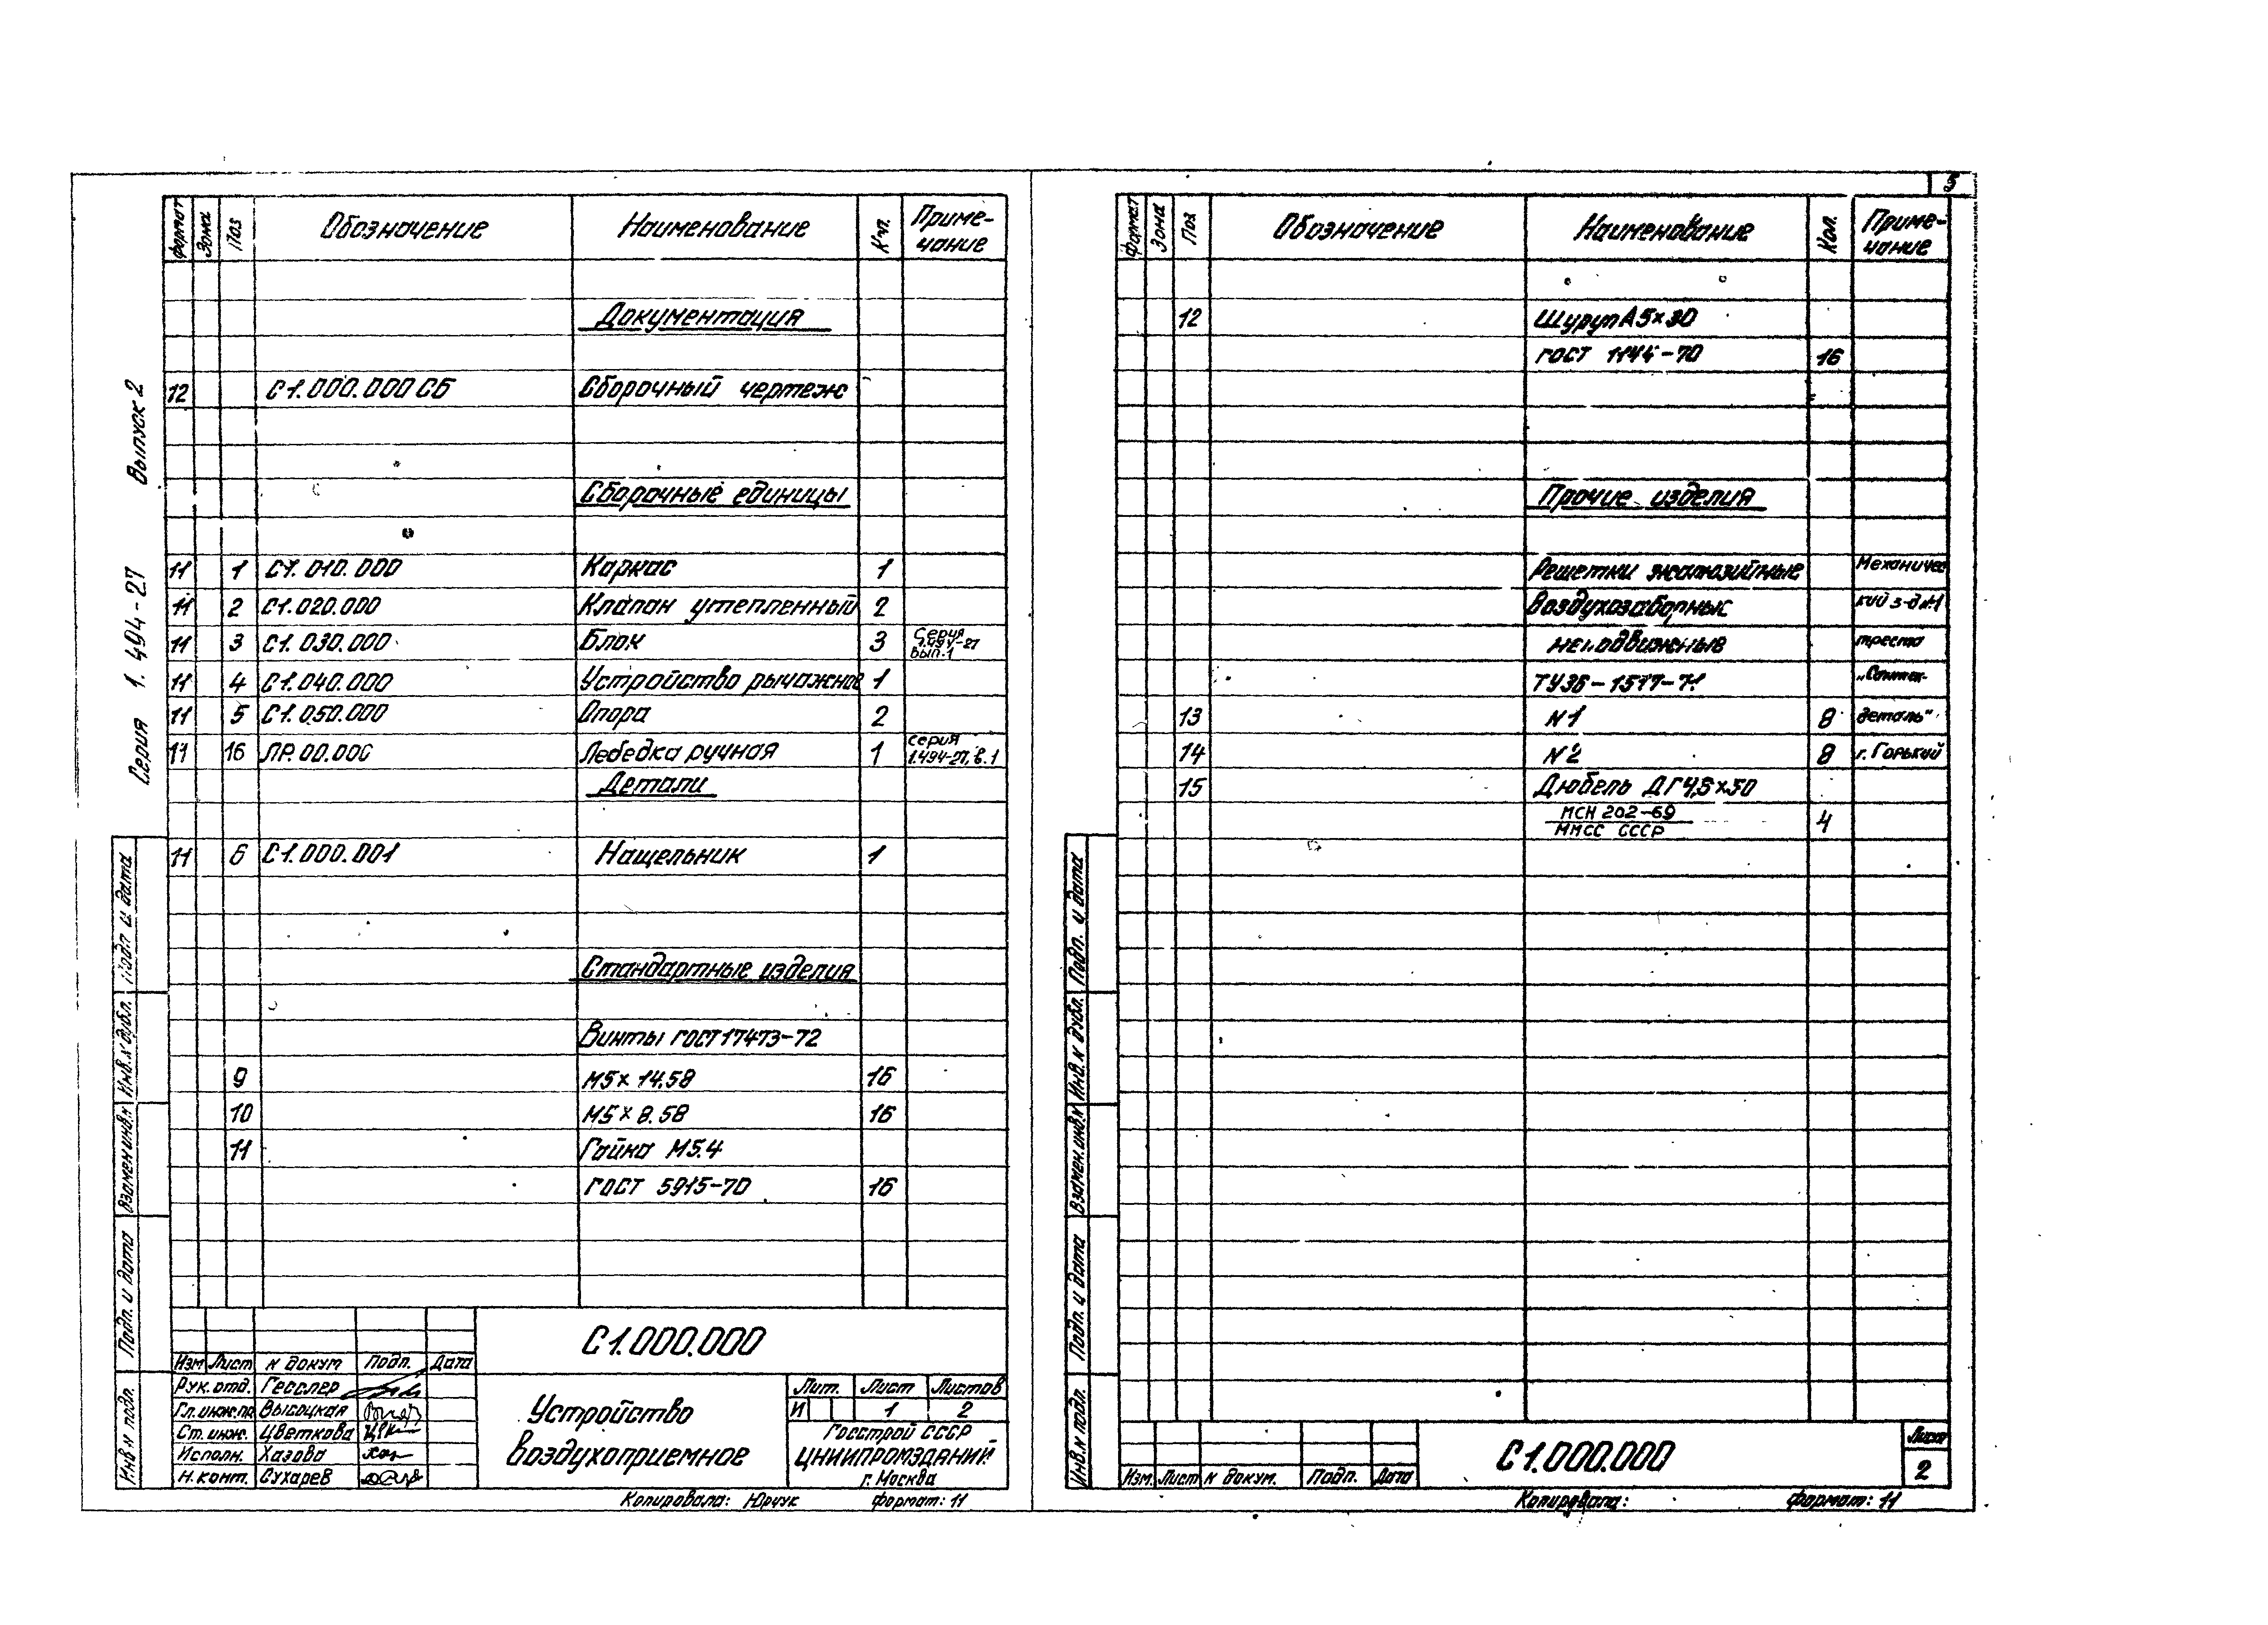 5
Серия 1.494-27 Выпуск 2
Формат Зона Поз Обозначение Наименование Кол. Приме-
чание
Документация
12 С1.000.000 СБ Сборочный чертеж
Сборочные единицы
11 1 С1.010.000 Каркас 1
11 2 С1.020.000 Клапан утепленный 2
11 3 С1.030.000 Блок 3 Серия
1.494-27
вып.1
11 4 С1.040.000 Устройство рычажное 1
11 5 С1.050.000 Опора 2
11 16 ЛР.00.000 Лебедка ручная 1 серия
1.494-27, в.1
Детали
11 6 С1.000.001 Нащельник 1
Стандартные изделия
Винты ГОСТ 17473-72
9 М5х14.58 16
10 М5х8.58 16
11 Гайка М5.4
ГОСТ 5915-70 16
Инв.№ подл. Подп. и дата Взамен инв.№ Инв.№ дубл. Подп и дата
С1.000.000
Изм Лист № докум Подп. Дата
Рук. отд. Гесслер
Гл.инж.пр Высоцкая
Ст. инж. Цветкова
Исполн. Хазова
Н.конт. Сухарев
Устройство
воздухоприемное
Лит. Лист Листов
И 1 2
Госстрой СССР
ЦНИИПРОМЗДАНИЙ
г. Москва
Копировала: Юрчук формат: 11
Формат Зона Поз Обозначение Наименование Кол. Приме-
чание
12 Шуруп А5х30
ГОСТ 1144-70 16
Прочие изделия
Решетки жалюзийные Механичес
воздухозаборные кий з-д №1
неподвижные треста
ТУ36-1517-71 „Сантех-
13 №1 8 деталь"
14 №2 8 г. Горький
15 Дюбель ДГ4,5х50
МСН 202-69
ММСС СССР 4
Инв.№ подл. Подп. и дата Взамен.инв.№ Инв.№ дубл. Подп. и дата
Изм. Лист № докум. Подп. Дата
С1.000.000
Лист
2
Копировала: формат: 11